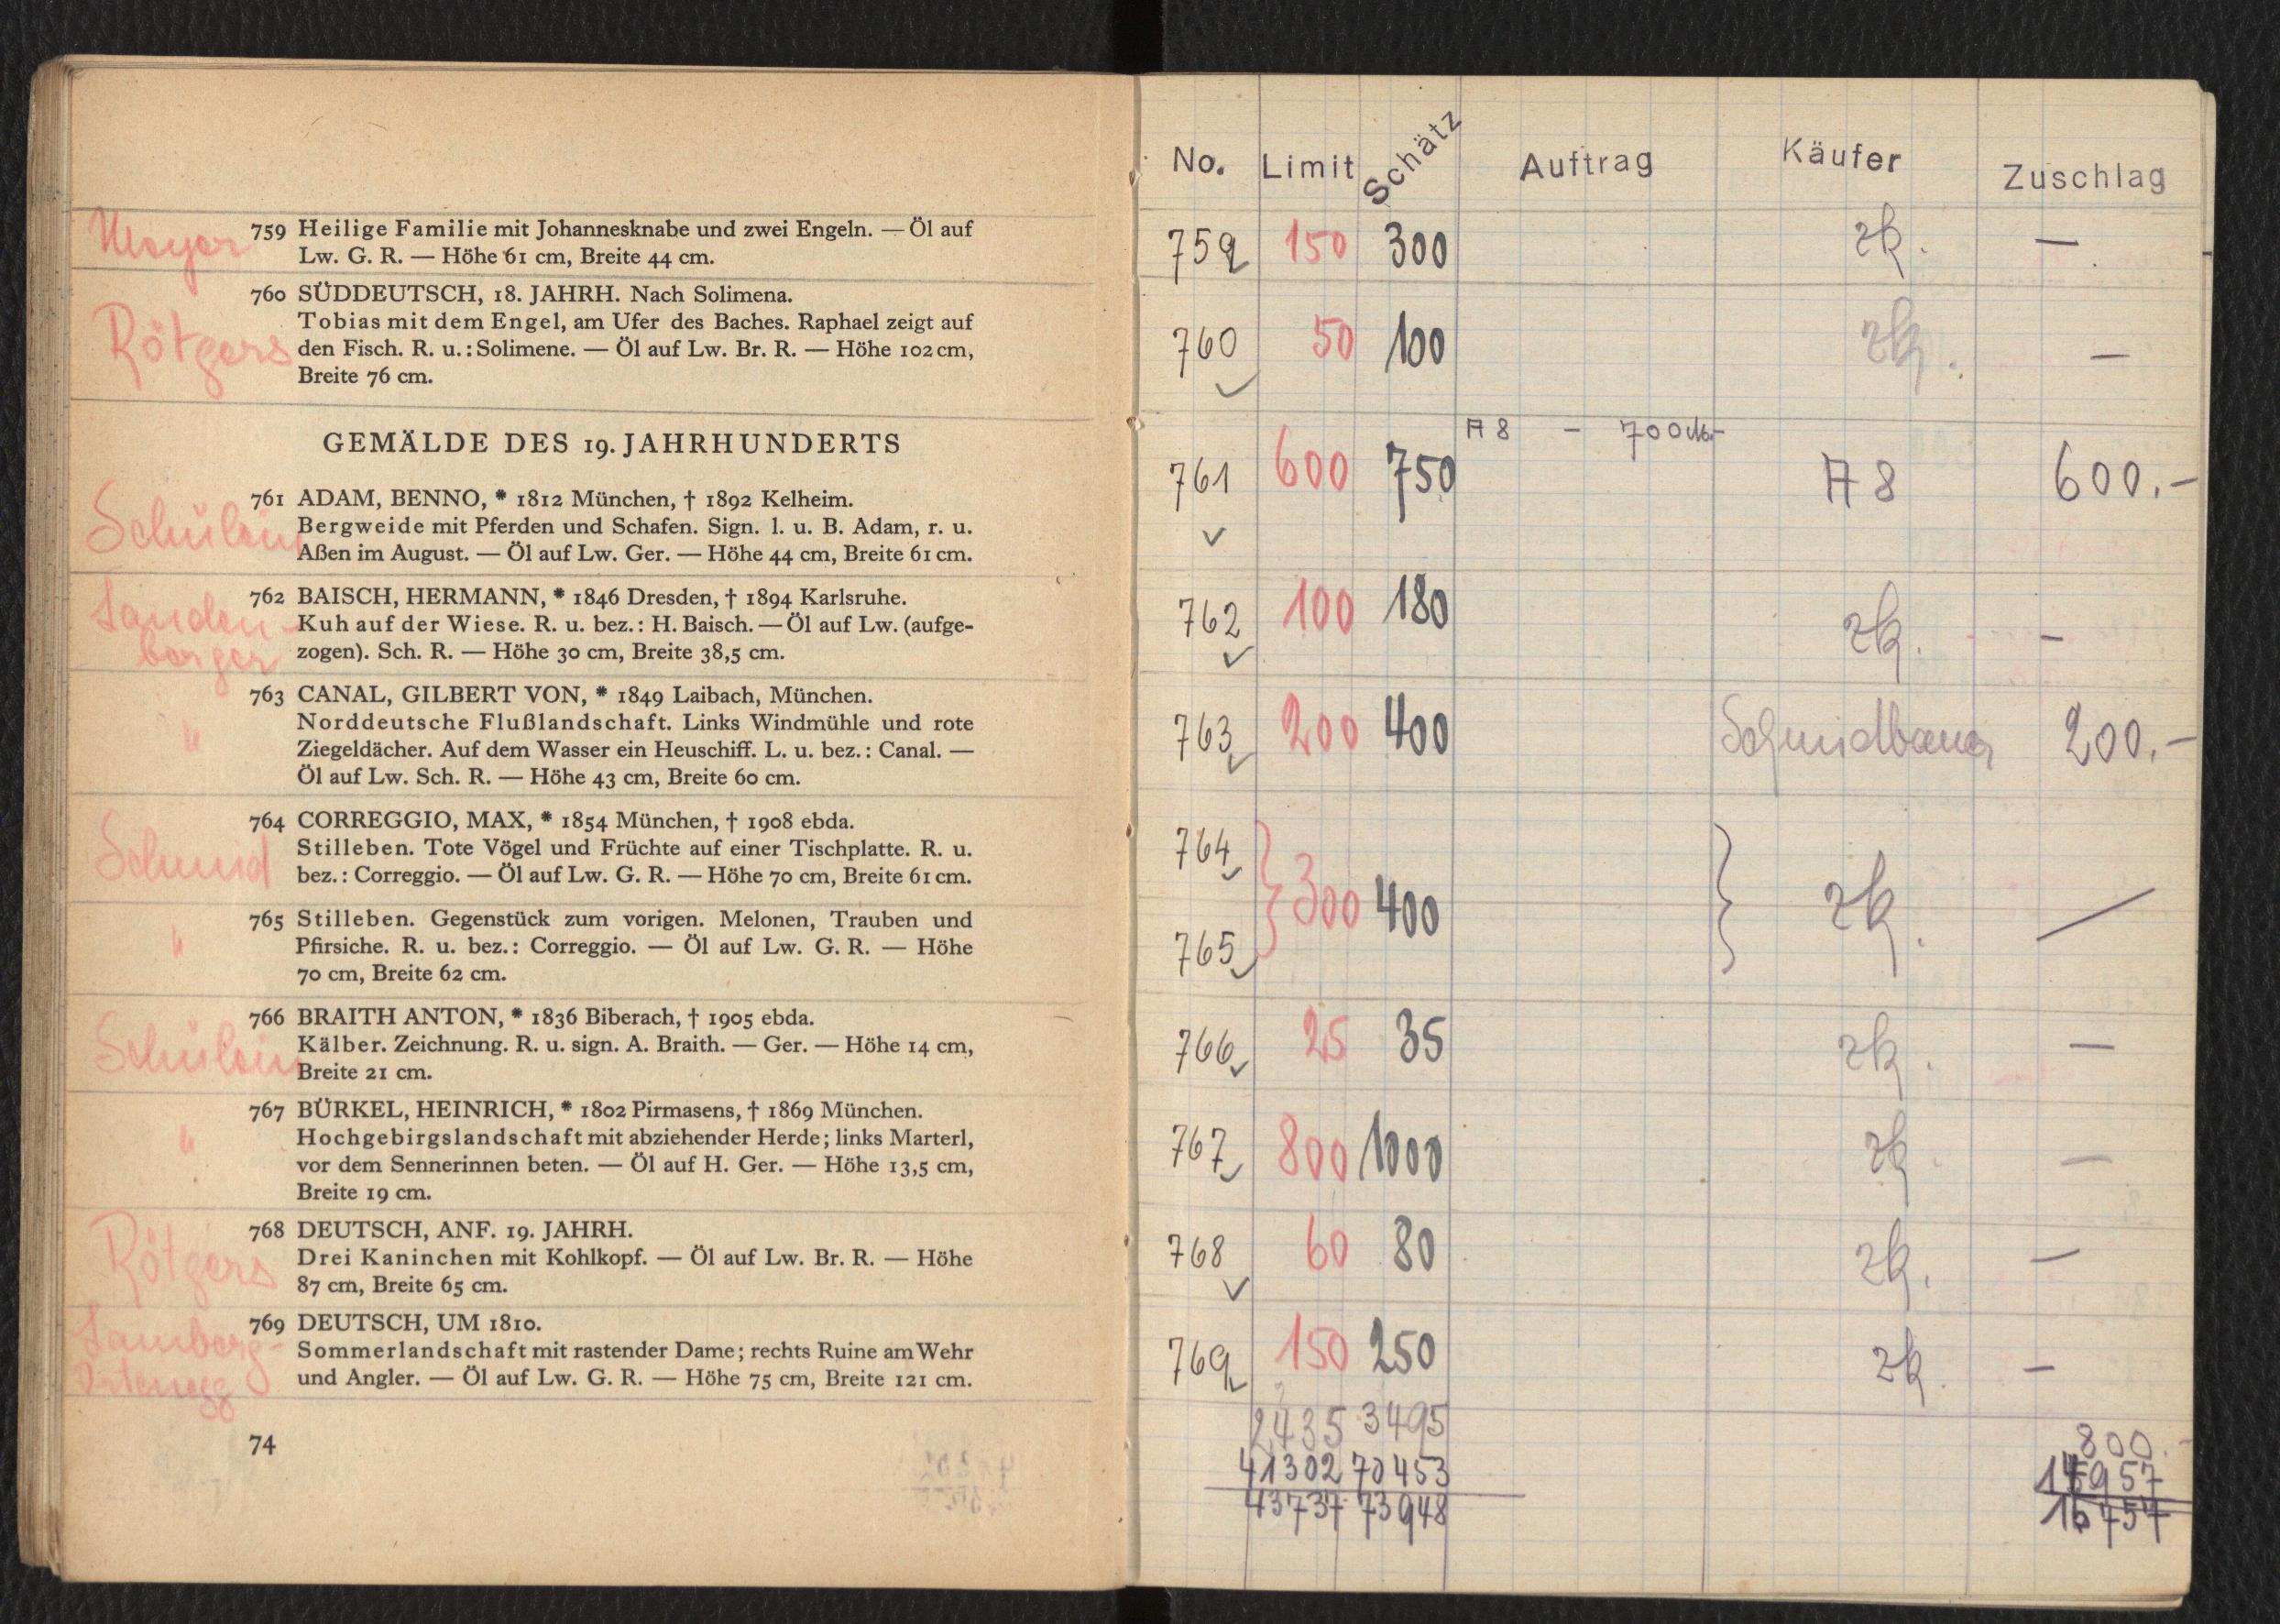 Mayer
759 Heilige Familie mit Johannesknabe und zwei Engeln. — Öl auf
Lw. G. R. — Höhe 61 cm, Breite 44 cm.
760 SÜDDEUTSCH, 18. JAHRH. Nach Solimena.
Rötgers
Tobias mit dem Engel, am Ufer des Baches. Raphael zeigt auf
den Fisch. R. u.: Solimene. — Öl auf Lw. Br. R. — Höhe 102 cm,
Breite 76 cm.
GEMÄLDE DES 19. JAHRHUNDERTS
761 ADAM, BENNO, * 1812 München, † 1892 Kelheim.
Schülein
Bergweide mit Pferden und Schafen. Sign. l. u. B. Adam, r. u.
Aßen im August. — Öl auf Lw. Ger. — Höhe 44 cm, Breite 61 cm.
762 BAISCH, HERMANN, * 1846 Dresden, † 1894 Karlsruhe.
Landen-
berger
Kuh auf der Wiese. R. u. bez.: H. Baisch. — Öl auf Lw. (aufge-
zogen). Sch. R. — Höhe 30 cm, Breite 38,5 cm.
763 CANAL, GILBERT VON, * 1849 Laibach, München.
"
Norddeutsche Flußlandschaft. Links Windmühle und rote
Ziegeldächer. Auf dem Wasser ein Heuschiff. L. u. bez.: Canal. —
Öl auf Lw. Sch. R. — Höhe 43 cm, Breite 60 cm.
764 CORREGGIO, MAX, * 1854 München, † 1908 ebda.
Schmid
Stilleben. Tote Vögel und Früchte auf einer Tischplatte. R. u.
bez.: Correggio. — Öl auf Lw. G. R. — Höhe 70 cm, Breite 61 cm.
"
765 Stilleben. Gegenstück zum vorigen. Melonen, Trauben und
Pfirsiche. R. u. bez.: Correggio. — Öl auf Lw. G. R. — Höhe
70 cm, Breite 62 cm.
766 BRAITH ANTON, * 1836 Biberach, † 1905 ebda.
Schülein
Kälber. Zeichnung. R. u. sign. A. Braith. — Ger. — Höhe 14 cm,
Breite 21 cm.
767 BÜRKEL, HEINRICH, * 1802 Pirmasens, † 1869 München.
"
Hochgebirgslandschaft mit abziehender Herde; links Marterl,
vor dem Sennerinnen beten. — Öl auf H. Ger. — Höhe 13,5 cm,
Breite 19 cm.
768 DEUTSCH, ANF. 19. JAHRH.
Rötgers
Drei Kaninchen mit Kohlkopf. — Öl auf Lw. Br. R. — Höhe
87 cm, Breite 65 cm.
769 DEUTSCH, UM 1810.
Lamberg-
Ortenegg
Sommerlandschaft mit rastender Dame; rechts Ruine am Wehr
und Angler. — Öl auf Lw. G. R. — Höhe 75 cm, Breite 121 cm.
74
No. Limit Schätz Auftrag Käufer Zuschlag
759 150 300 zk. —
760 50 100 zk. —
A 8 - 700 M.-
761 600 750 A 8 600.-
762 100 180 zk. —
763 200 400 Schmidbauer 200.-
764
300 400 zk. —
765
766 25 35 zk. —
767 800 1000 zk. —
768 60 80 zk. —
769 150 250 zk. —
2435 3495 800.-
41302 70453
43737 73948